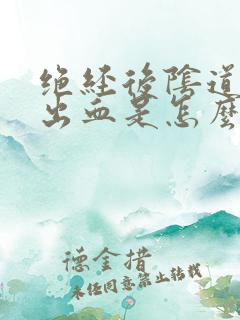 绝经後陰道
出血是怎麽
德金措
未经同意禁止转载